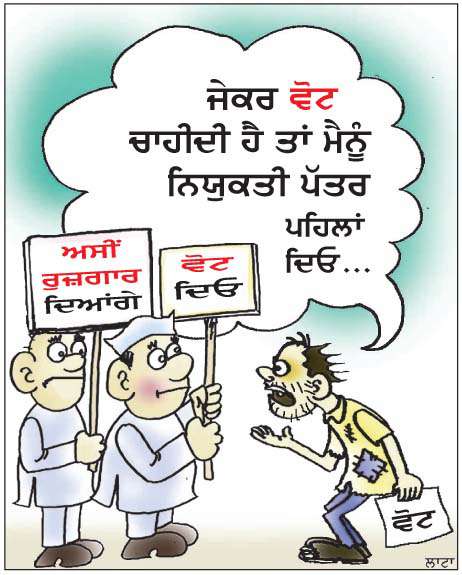 ਜੇਕਰ ਵੋਟ
ਚਾਹੀਦੀ ਹੈ ਤਾਂ ਮੈਨੂੰ
ਨਿਯੁਕਤੀ ਪੱਤਰ
ਪਹਿਲਾਂ
ਦਿਓ...
ਅਸੀਂ
ਰੁਜ਼ਗਾਰ
ਦਿਆਂਗੇ
ਵੋਟ
ਦਿਓ
ਵੋਟ
ਲਾਟਾ